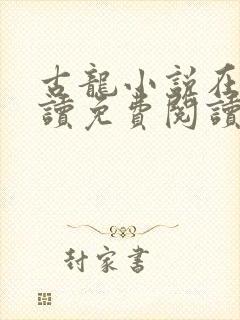 古龍小說在
讀免費閱讀
封家書